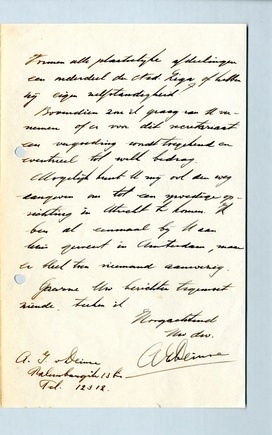 Vormen alle plaatselijke afdeelingen
een onderdeel de Ned. Liga of hebben
zij eigen zelfstandigheid?
Bovendien zou ik graag van U ver-
nemen of er voor dit secretariaat
een vergoeding wordt toegekend en
eventueel tot welk bedrag.
Mogelijk kunt U mij ook den weg
aangeven om tot een spoedige op-
richting in Utrecht te komen. Ik
ben al eenmaal bij U aan
huis geweest in Amsterdam, maar
er bleek toen niemand aanwezig.
Gaarne Uw berichten tegemoet
ziende, teeken ik
Hoogachtend
Uw dw.
A. J.
Tel. 12312.